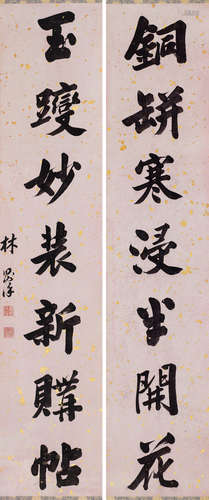 銅缾寒浸半開花
玉躞妙装新購帖
林則徐